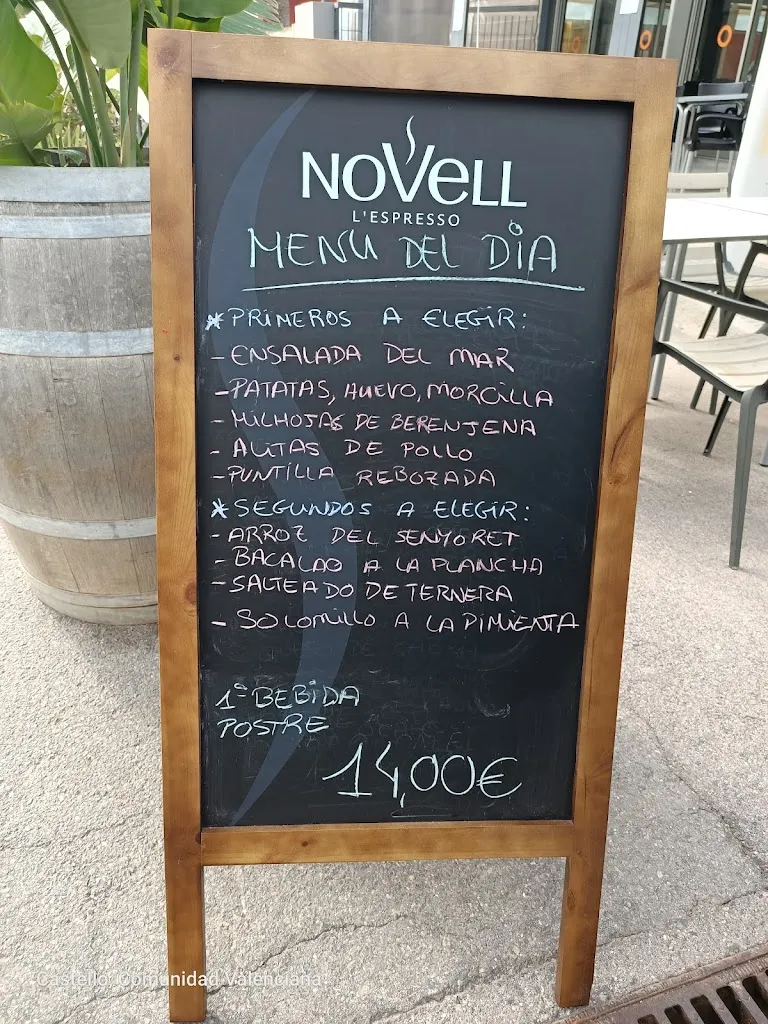 NOVELL
L'ESPRESSO
MENU DEL DIA
* PRIMEROS A ELEGIR:
- ENSALADA DEL MAR
- PATATAS, HUEVO, MORCILLA
- MILHOJAS DE BERENJENA
- ALITAS DE POLLO
- PUNTILLA REBOZADA
* SEGUNDOS A ELEGIR:
- ARROZ DEL SENYORET
- BACALAO A LA PLANCHA
- SALTEADO DE TERNERA
- SOLOMILLO A LA PIMIENTA
1ª BEBIDA
POSTRE
14,00€
Castelló, Comunidad Valenciana